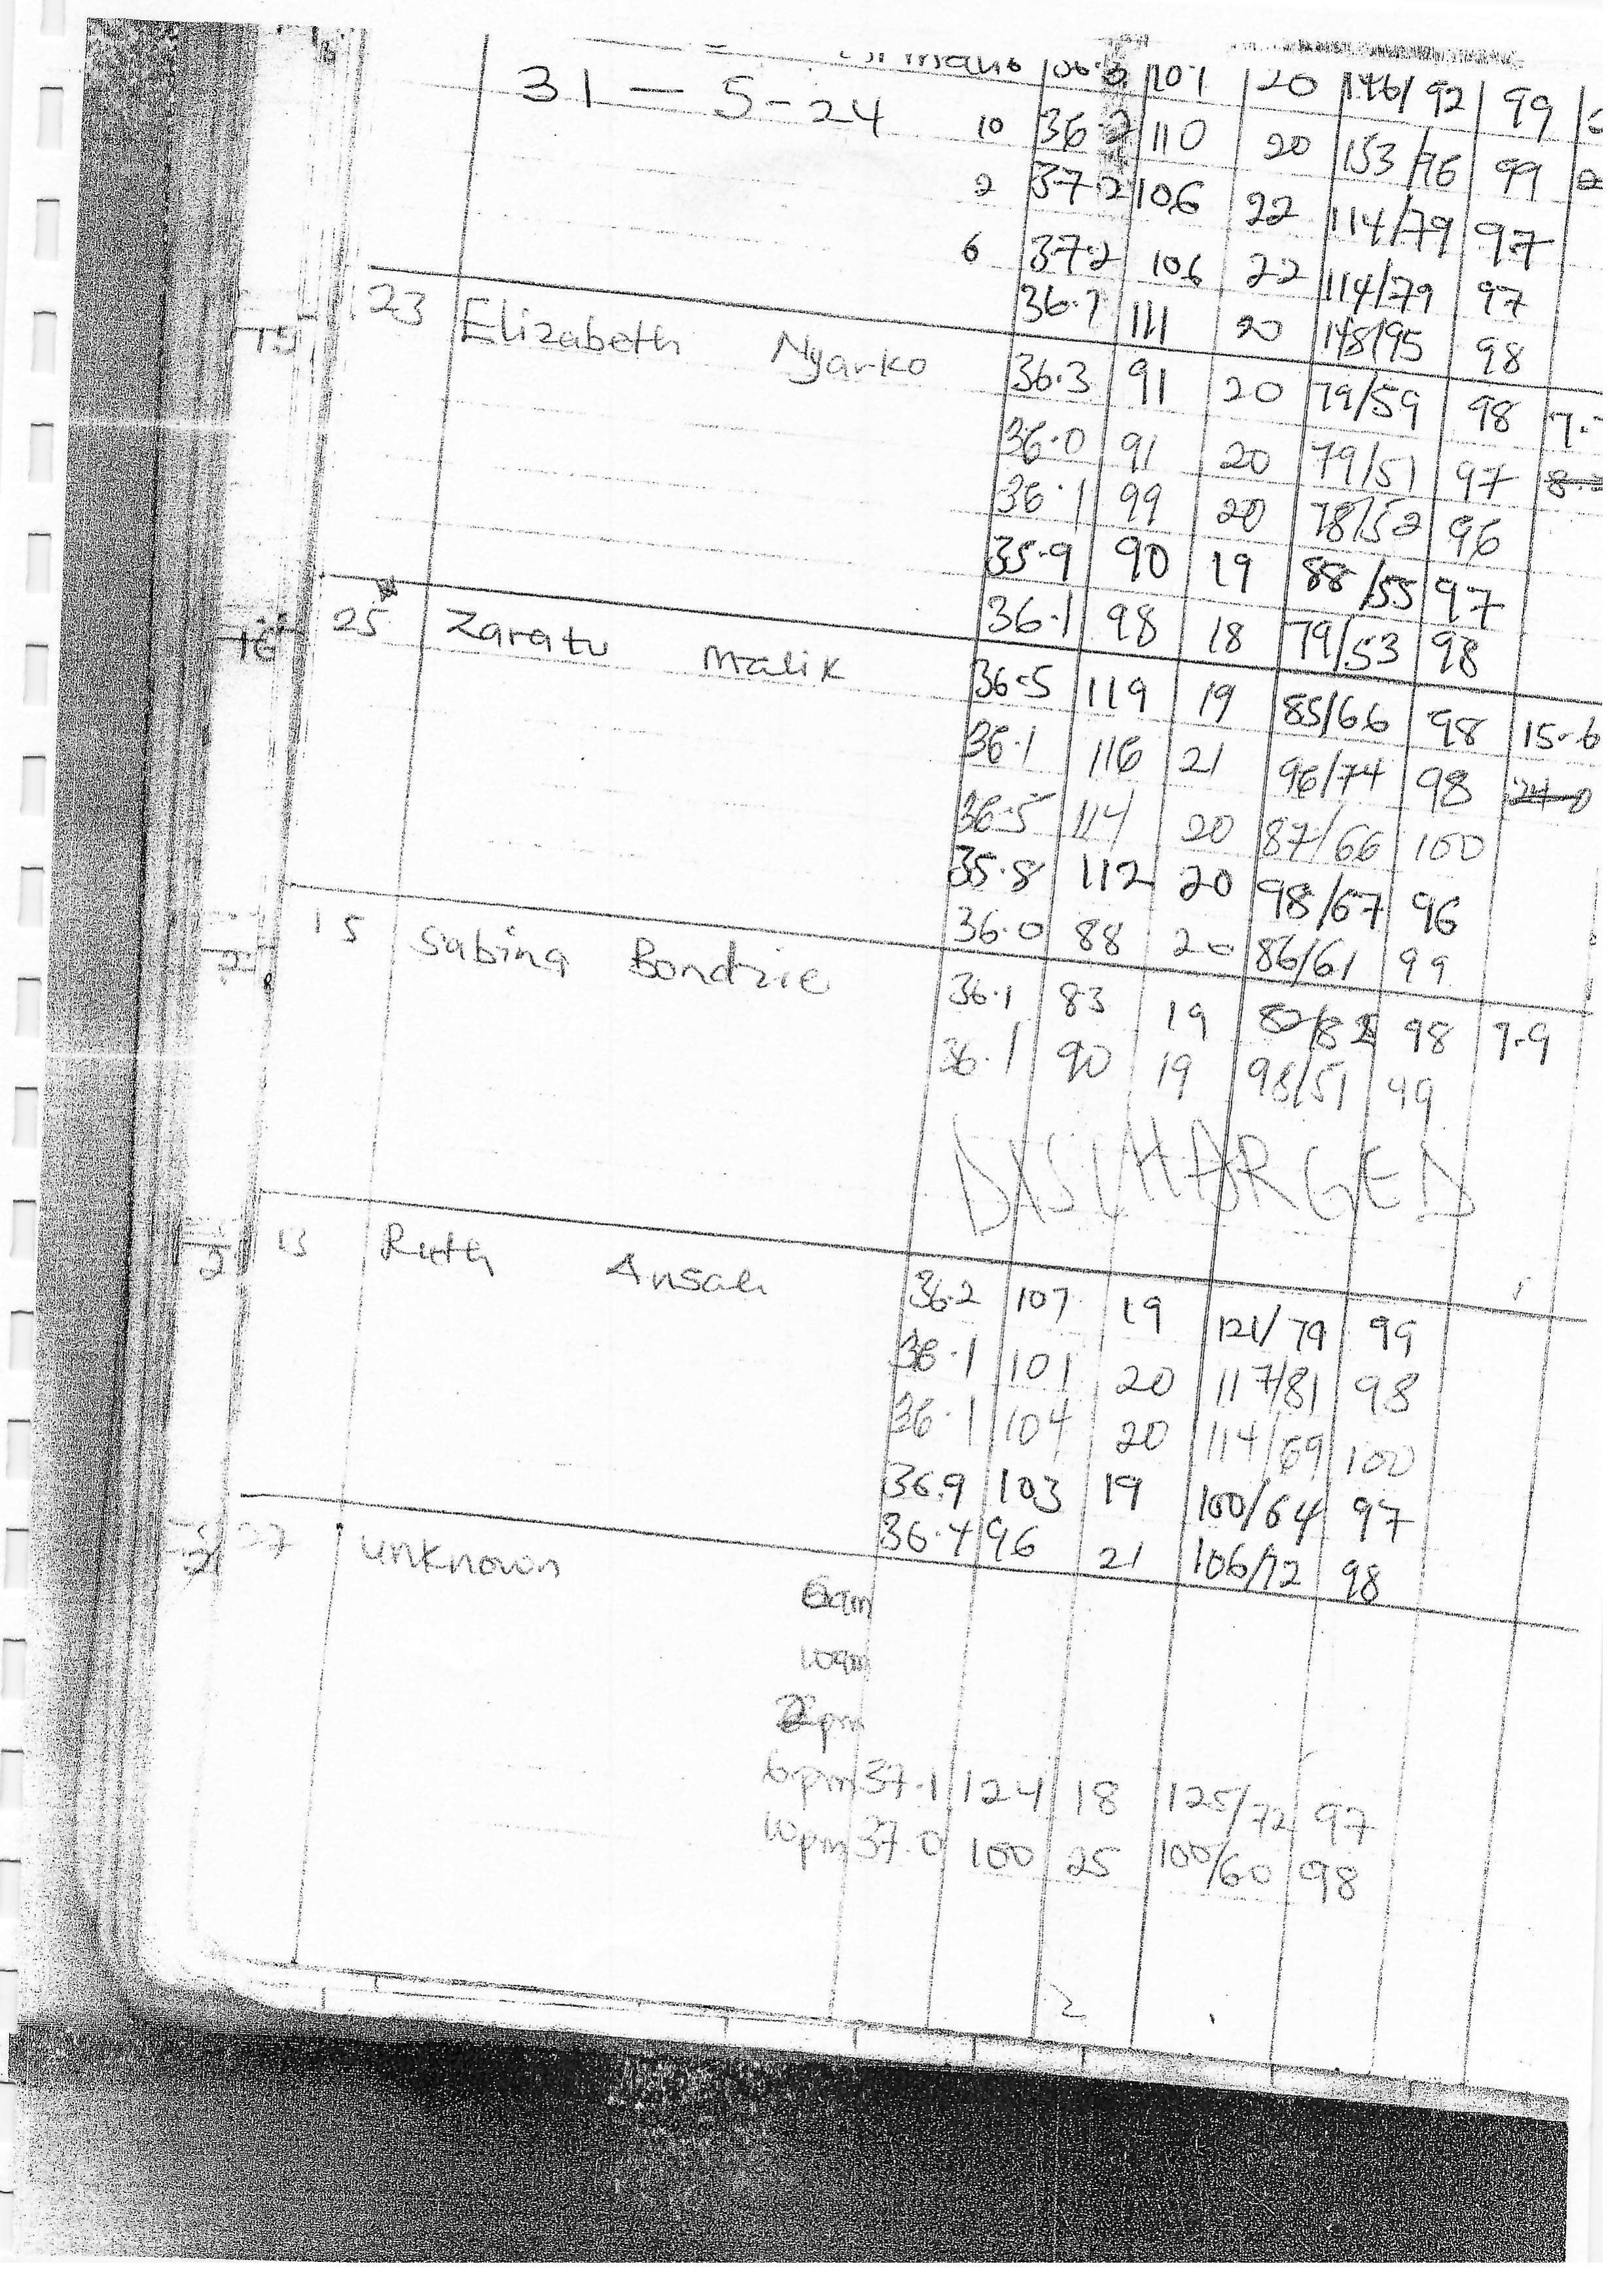 20 146/92 99
31 - 5-24 10 36.2 110 20 153/96 99
2 37.2 106 22 114/79 97
6 37.2 106 22 114/79 97
36.7 111 20 148/95 98
23 Elizabeth Nyarko 36.3 91 20 79/59 98
36.0 91 20 79/51 97
36.1 99 20 78/52 96
35.9 90 19 88/55 97
36.1 98 18 79/53 98
25 Zaratu Malik 36.5 119 19 85/66 98 15.6
36.1 116 21 96/74 98
36.5 114 20 87/66 100
35.8 112 20 98/67 96
36.0 88 20 86/61 99
15 Sabina Bondzie 36.1 83 19 98 7.9
36.1 90 19 98/51 99
DISCHARGED
13 Ruth Ansah 36.2 107 19 121/79 99
36.1 101 20 117/81 98
36.1 104 20 114/69 100
36.9 103 19 100/64 97
36.4 96 21 106/72 98
27 unknown 6am
10am
2pm
6pm 37.1 124 18 125/72 97
10pm 37.0 100 25 100/60 98